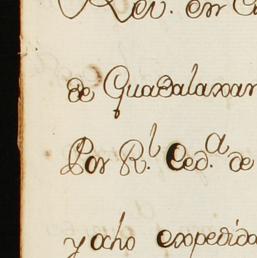 Rei. en
de Guadalaxar
Por R.l Ced.a de
y ocho expedida